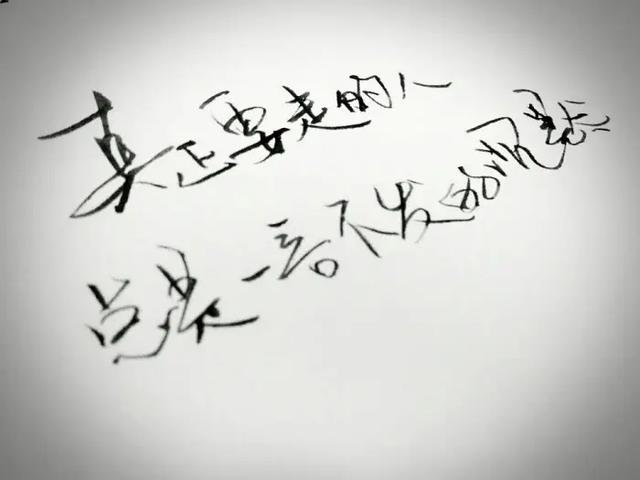 真正要走的人
总一言不发的沉默